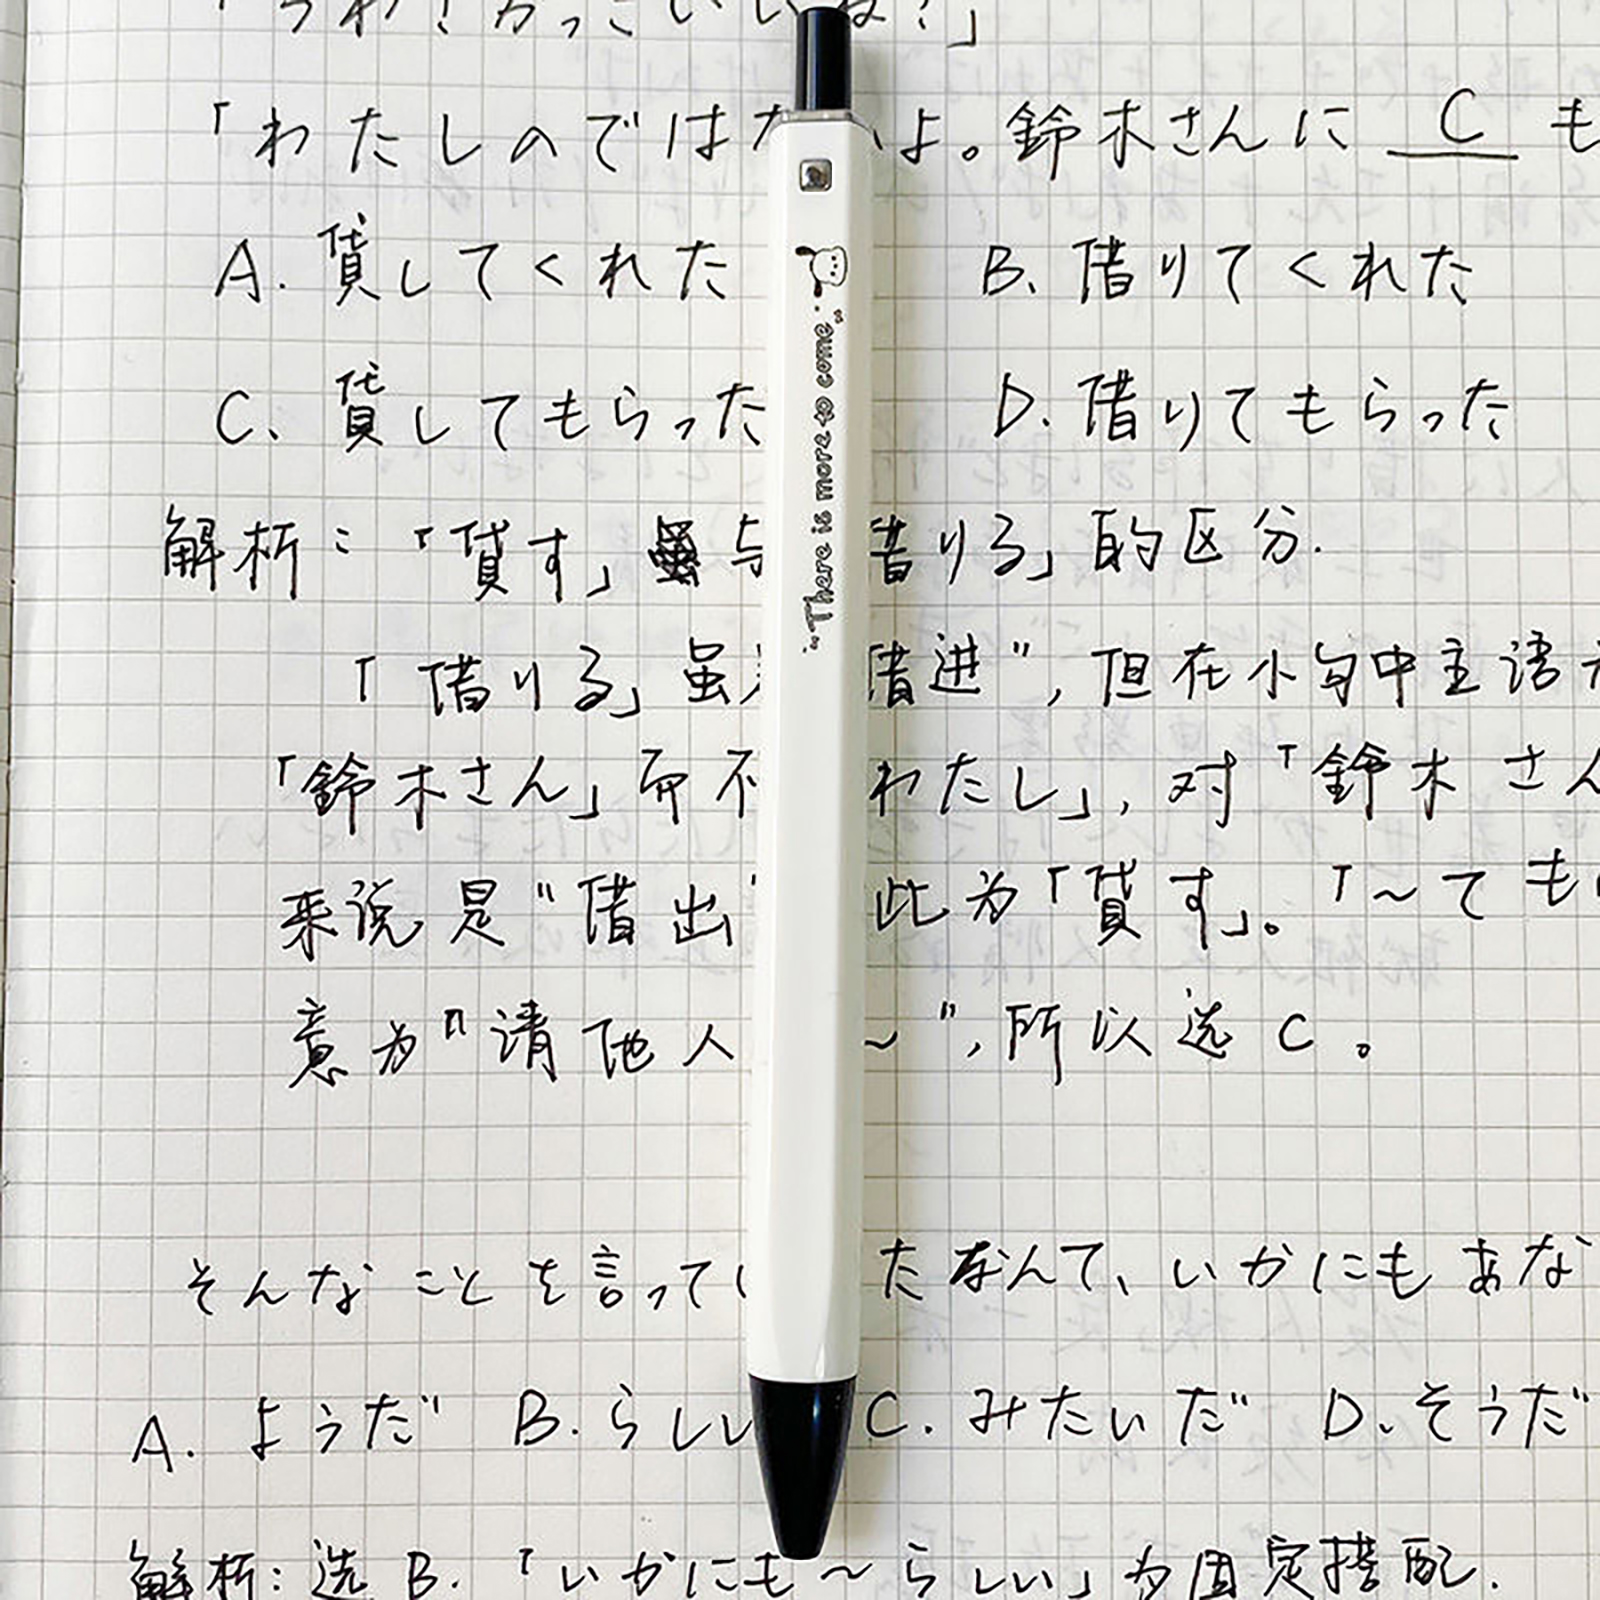 「うわ！かっこいいね？」
「わたしのではな よ。鈴木さんに C も
A. 貸してくれた B. 借りてくれた
C. 貸してもらった D. 借りてもらった
解析：「貸す」与 借りる」的区分.
「借りる」虽 借进”, 但在小句中主语
「鈴木さん」而不 わたし」, 对「鈴木さん
来说是“借出” 此为「貸す」。「～ても
意为“请他人 ～”, 所以选C。
そんなことを言って たなんて、いかにもあな
A. ようだ B. らしい C. みたいだ D. そうだ
解析: 选B. 「いかにも～らしい」为固定搭配.
"There is more to come"